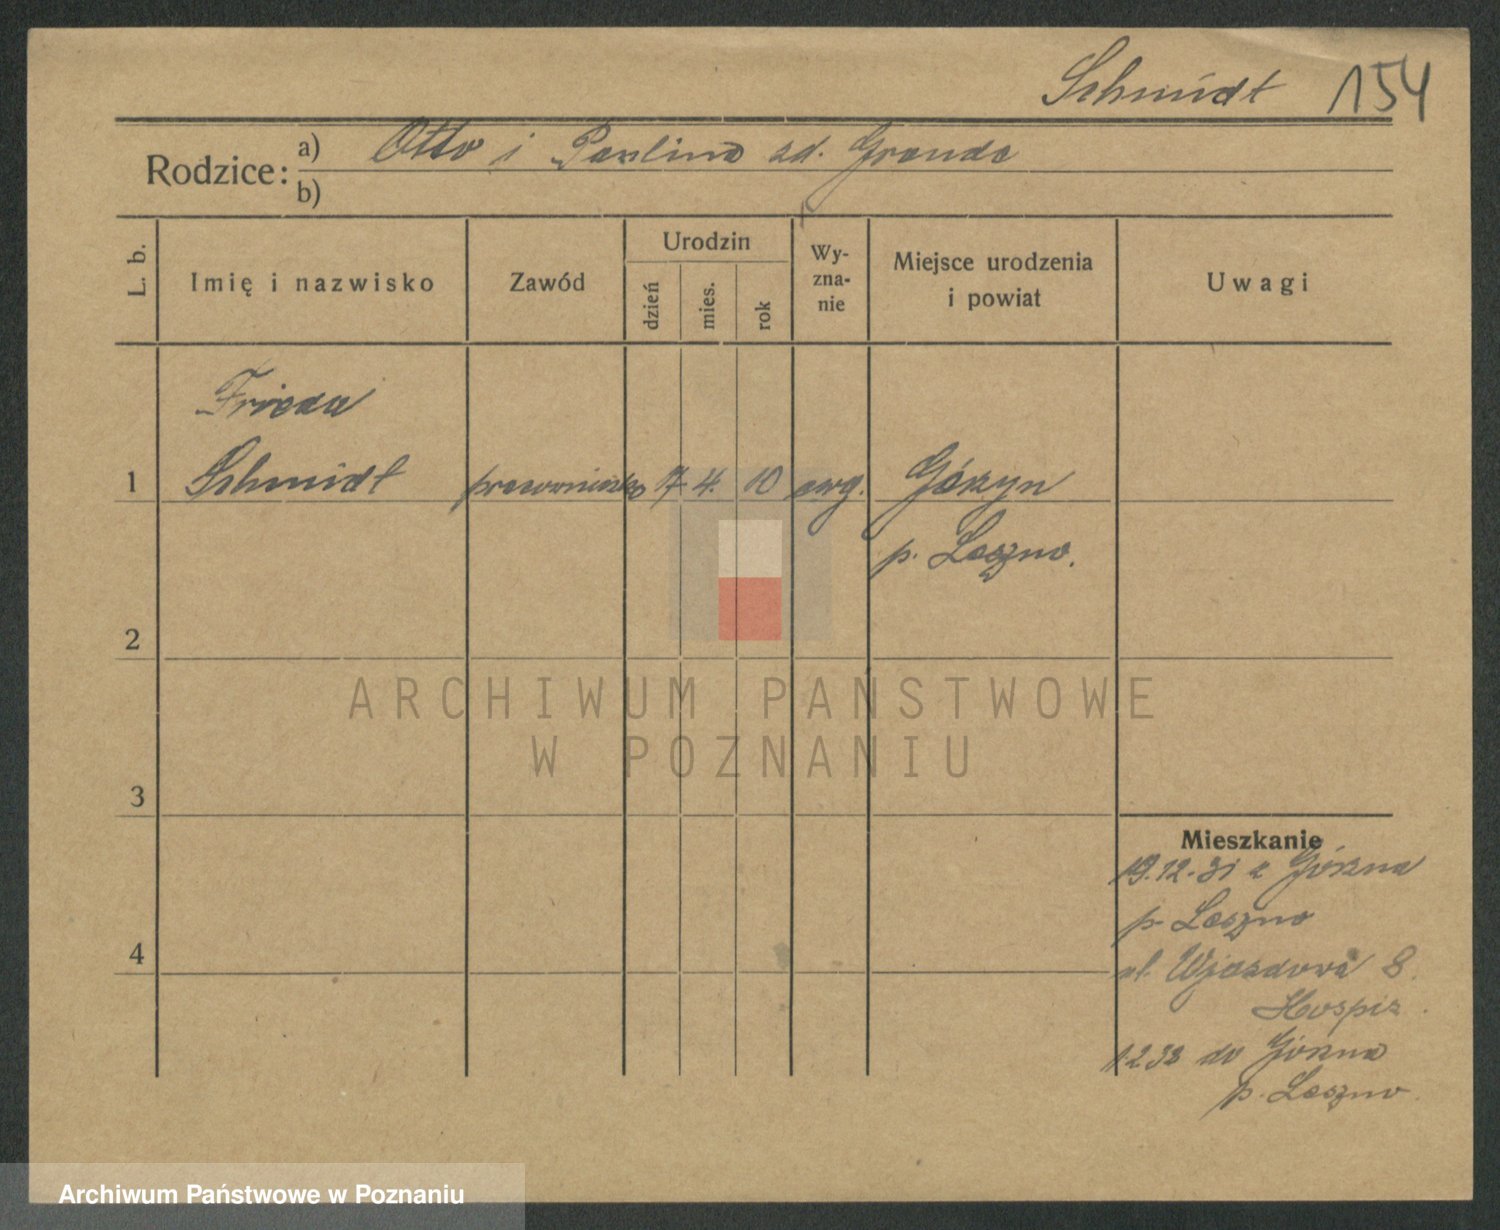 Schmidt 154
Rodzice: a) Otto i Paulina zd. Grande
b)
L. b. Imię i nazwisko Zawód Urodzin dzień mies. rok Wy-zna-nie Miejsce urodzenia i powiat Uwagi
Frieda
1 Schmidt 17 4. 10 ewg. Górzyn
p. Leszno.
2
ARCHIWUM PAŃSTWOWE
W POZNANIU
3
Mieszkanie
19.12.31 z Górzna
p. Leszno
4 ul. Wjazdowa 8.
Hospiz
1 2 33 do Górzna
p. Leszno.
Archiwum Państwowe w Poznaniu